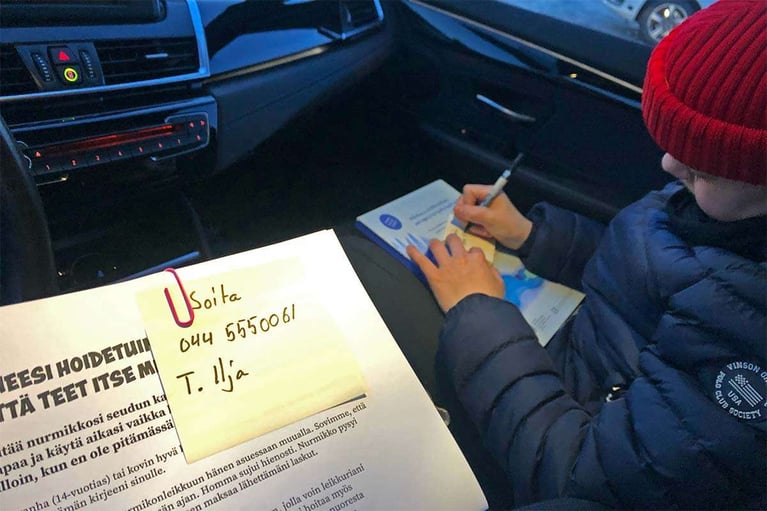 Soita
044 5550061
T. Ilja
EESI HOIDETUI
TTÄ TEET ITSE M
ltää nurmikkosi seudun ka
paa ja käytä aikasi vaikka
lloin, kun en ole pitämässä
anha (14-vuotias) tai kovin hyvä
tämän kirjeeni sinulle.
rmikonleikkuun hänen asuessaan muualla. Sovimme, että
en ajan. Homma sujui hienosti. Nurmikko pysyi
maksaa lähettämäni laskut.
jolla voin leikkuriani
hoitaa myös
nuoresta
VINSON
POLO CLUB
USA
SOCIETY